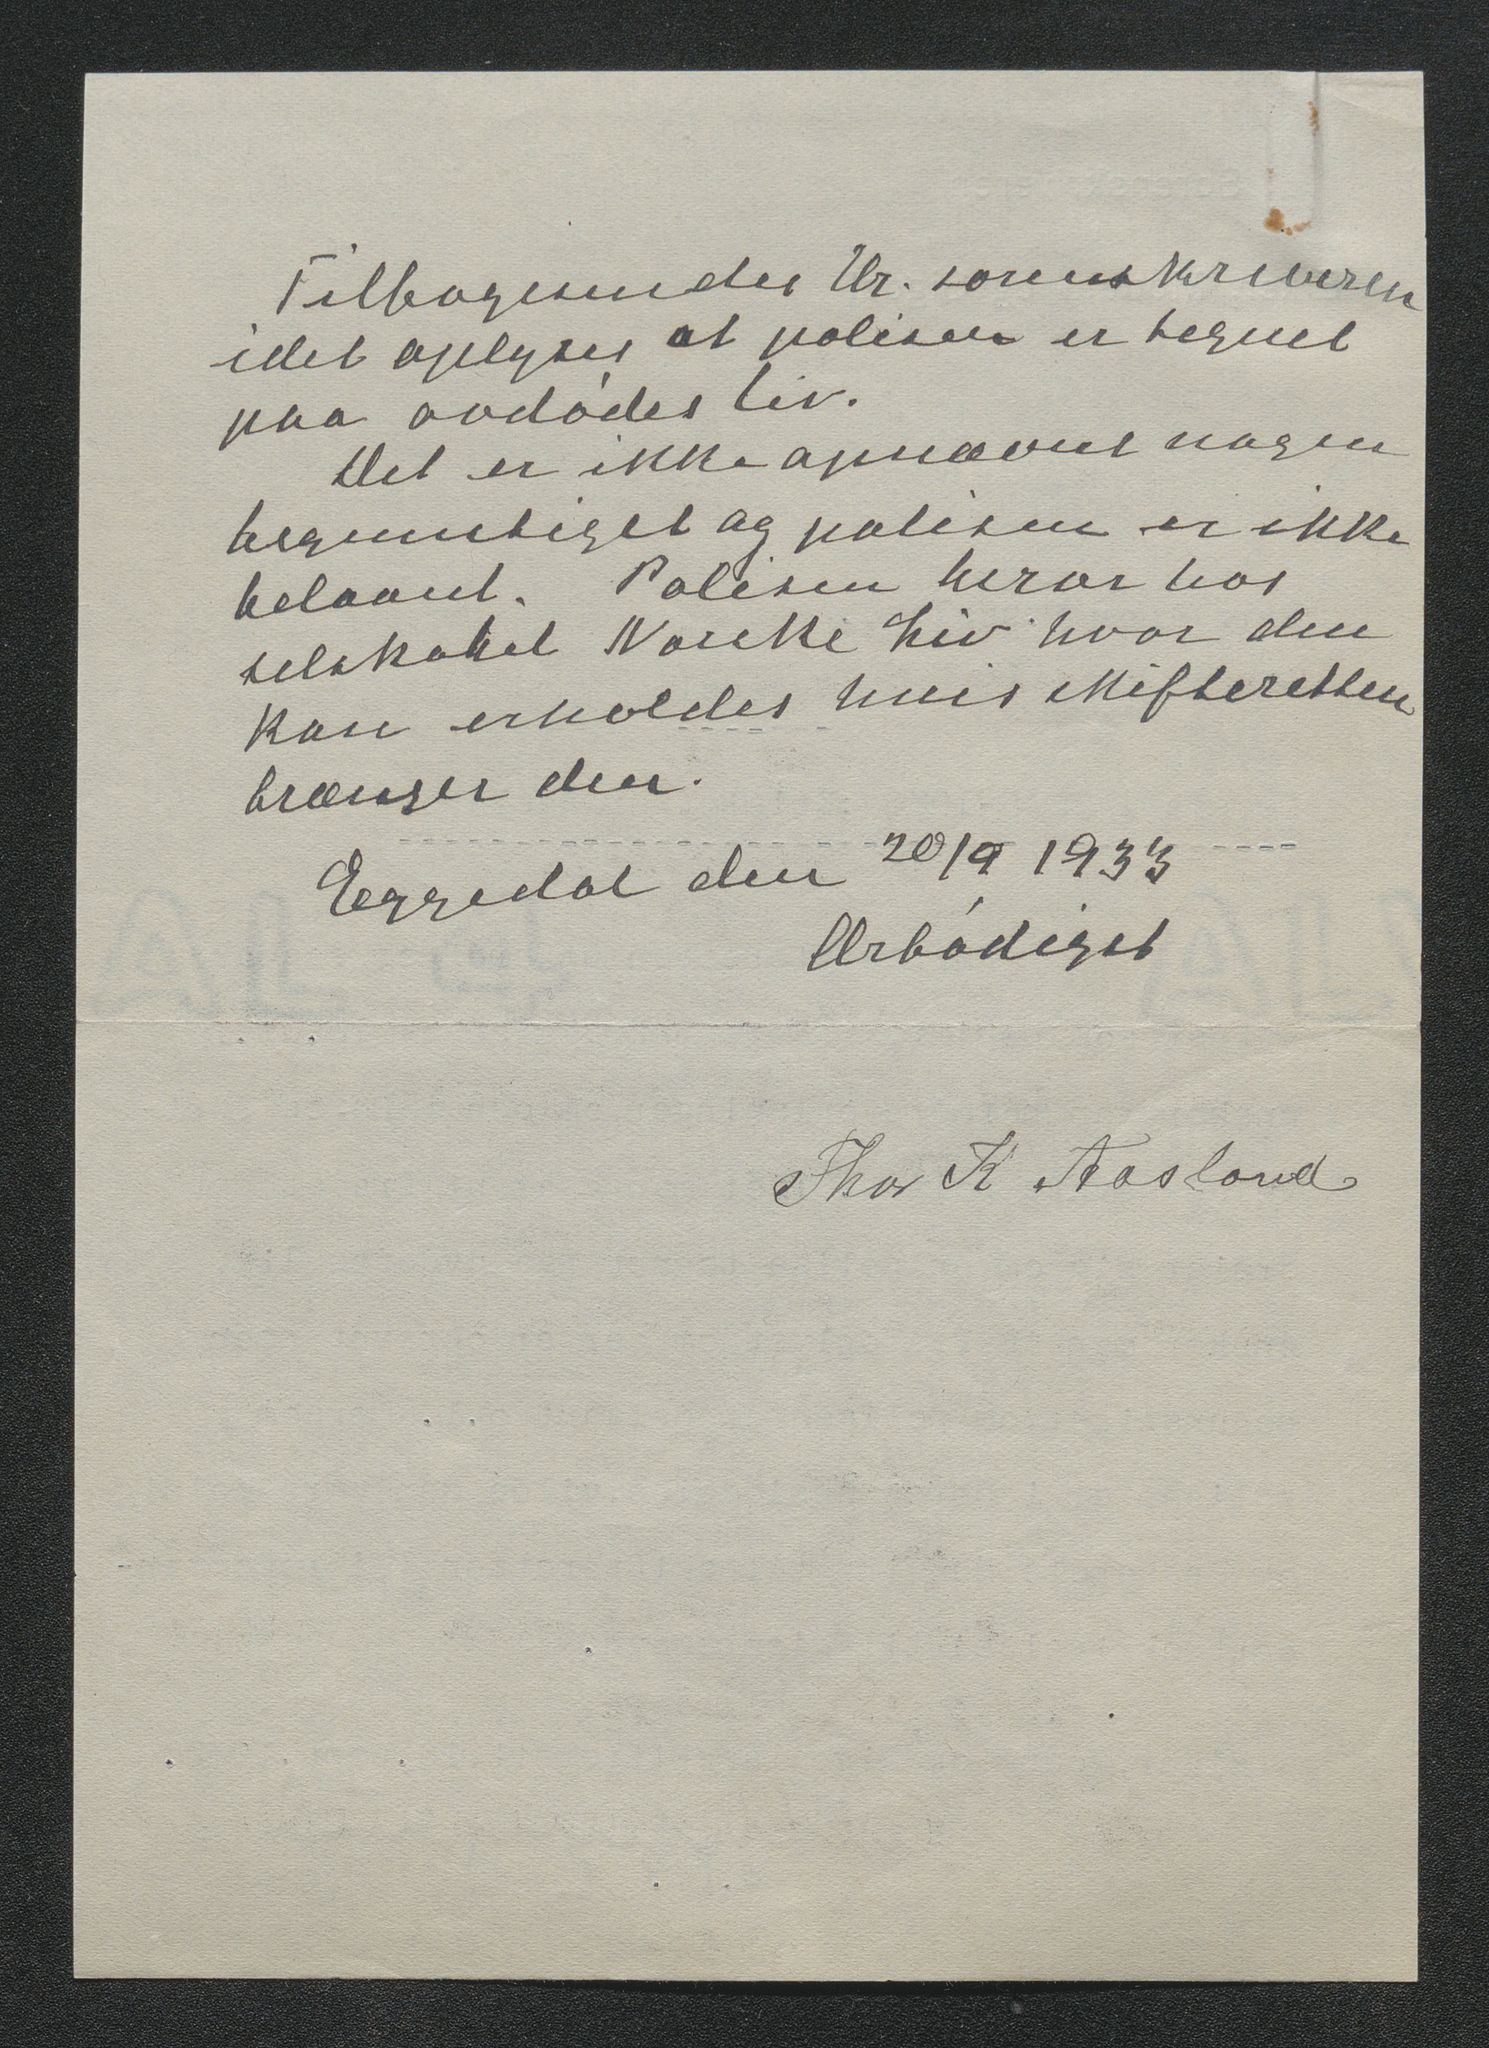 Tilbagesendes Hr. sorenskriveren
idet oplyses at polisen er tegnet
paa avdødes liv.
Det er ikke opnævnt nogen
begunstiget og polisen er ikke
belaant. Polisen beror hos
selskabet Norske Liv hvor den
kan erholdes hvis skifteretten
trænger den.
Eggedal den 20/9 1933
Ærbødigst
Thor K Aasland